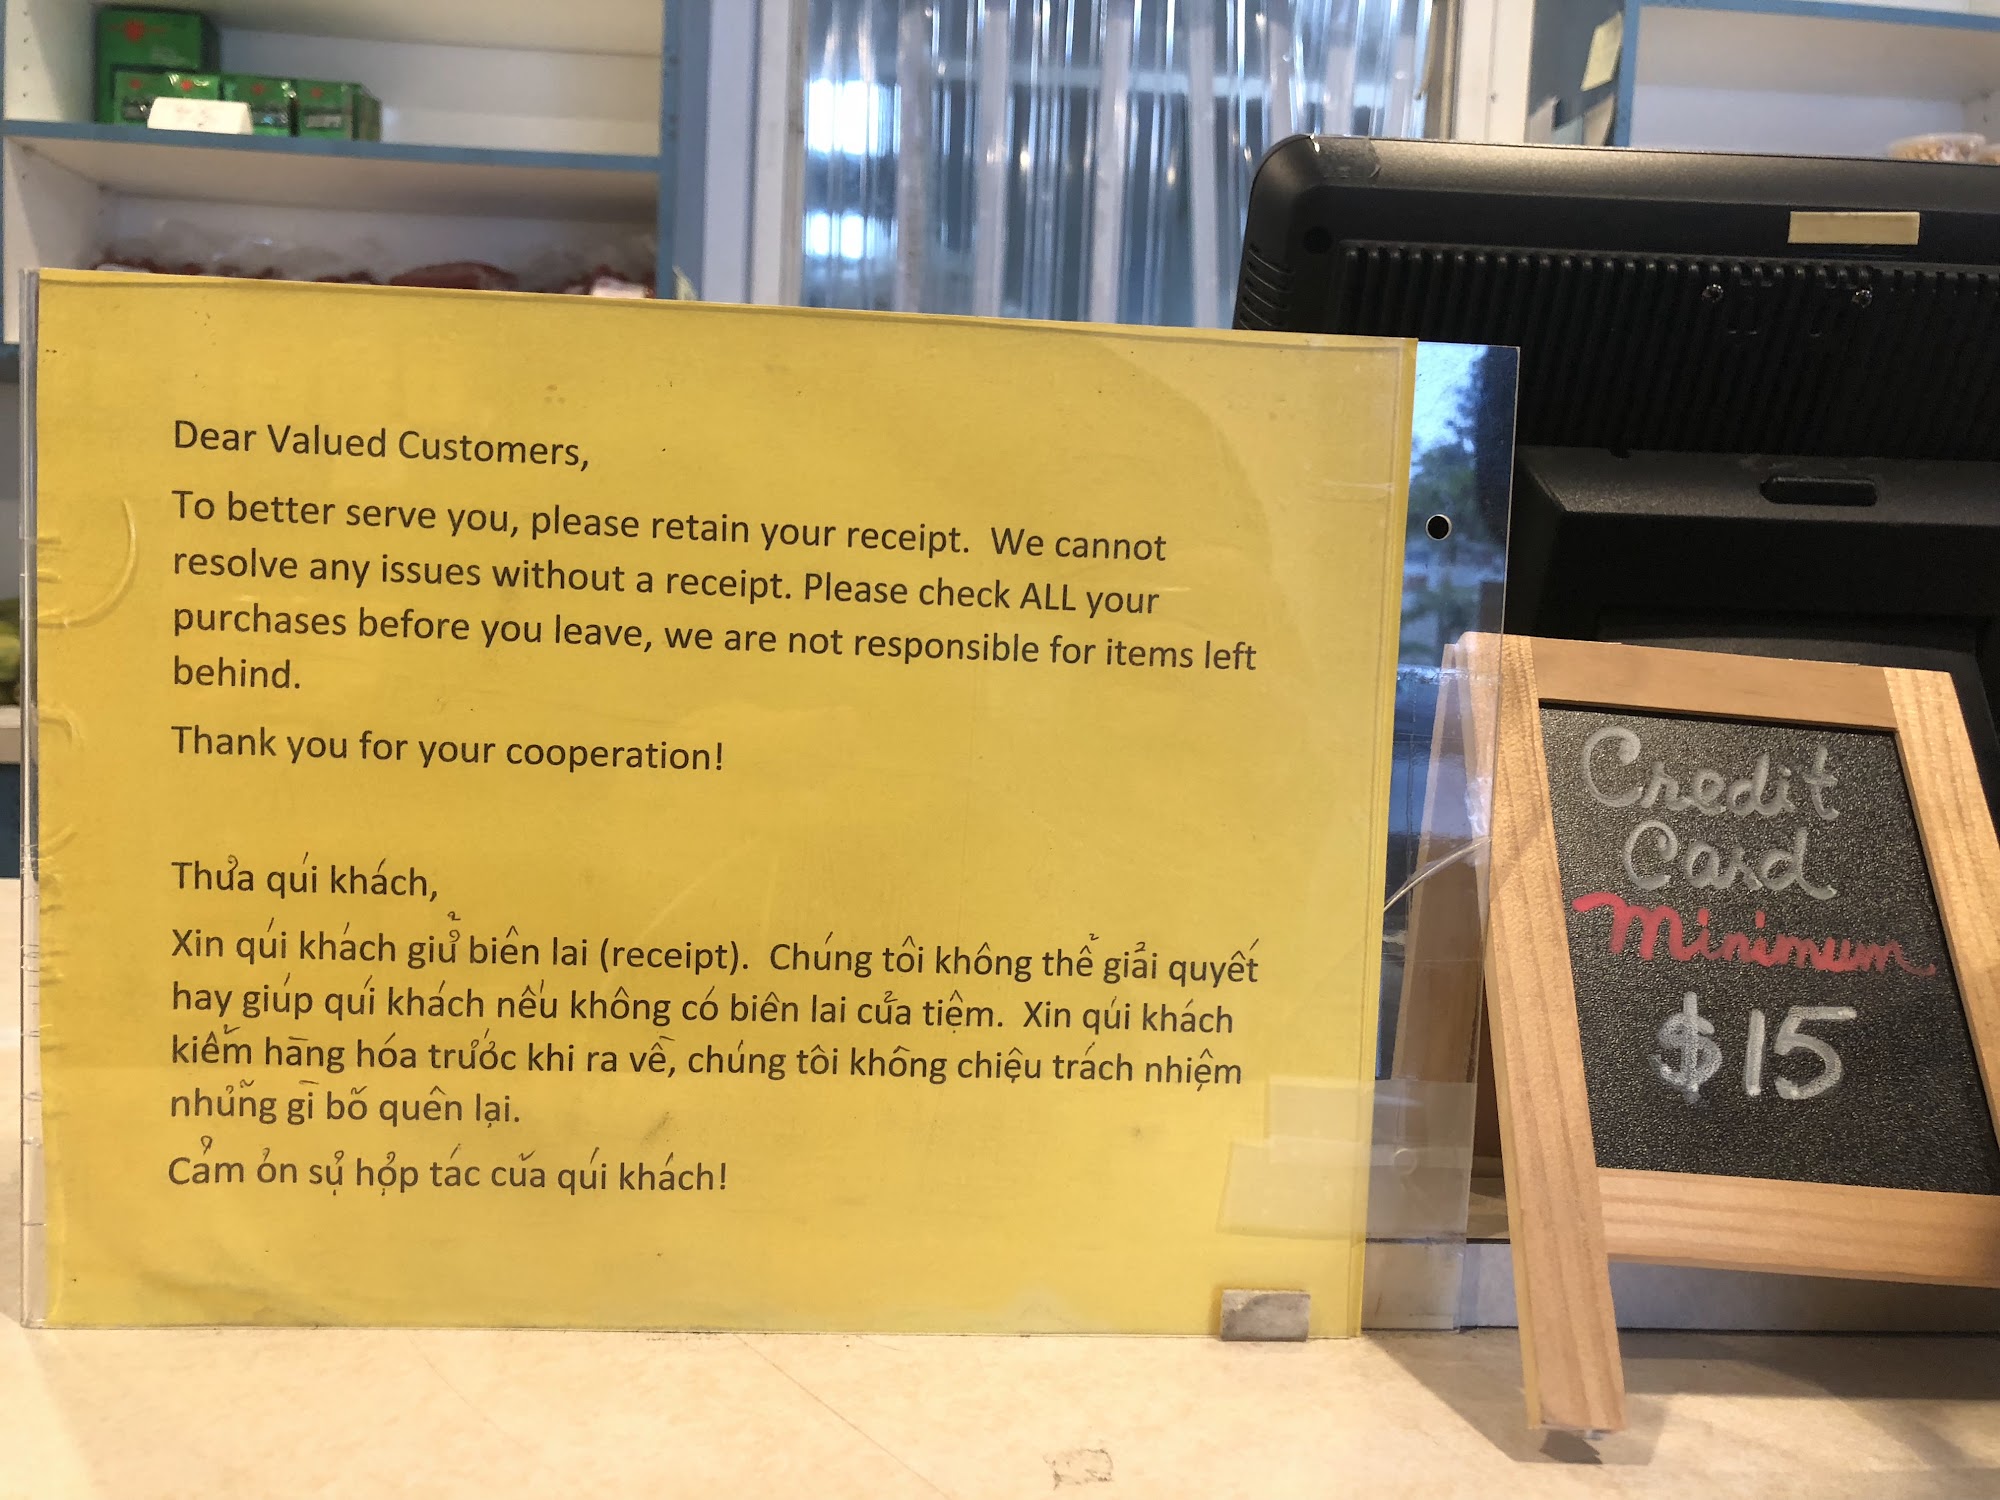 Dear Valued Customers,
To better serve you, please retain your receipt.  We cannot
resolve any issues without a receipt. Please check ALL your
purchases before you leave, we are not responsible for items left
behind.
Thank you for your cooperation!
Thửa qúi khách,
Xin qúi khách giử biên lai (receipt).  Chúng tôi không thể giải quyết
hay giúp quí khách nếu không có biên lai của tiệm.  Xin qúi khách
kiểm hàng hóa trước khi ra về, chúng tôi không chiệu trách nhiệm
những gì bõ quên lại.
Cảm ỏn sự hợp tác cũa qúi khách!
Credit
Card
Minimum
$15